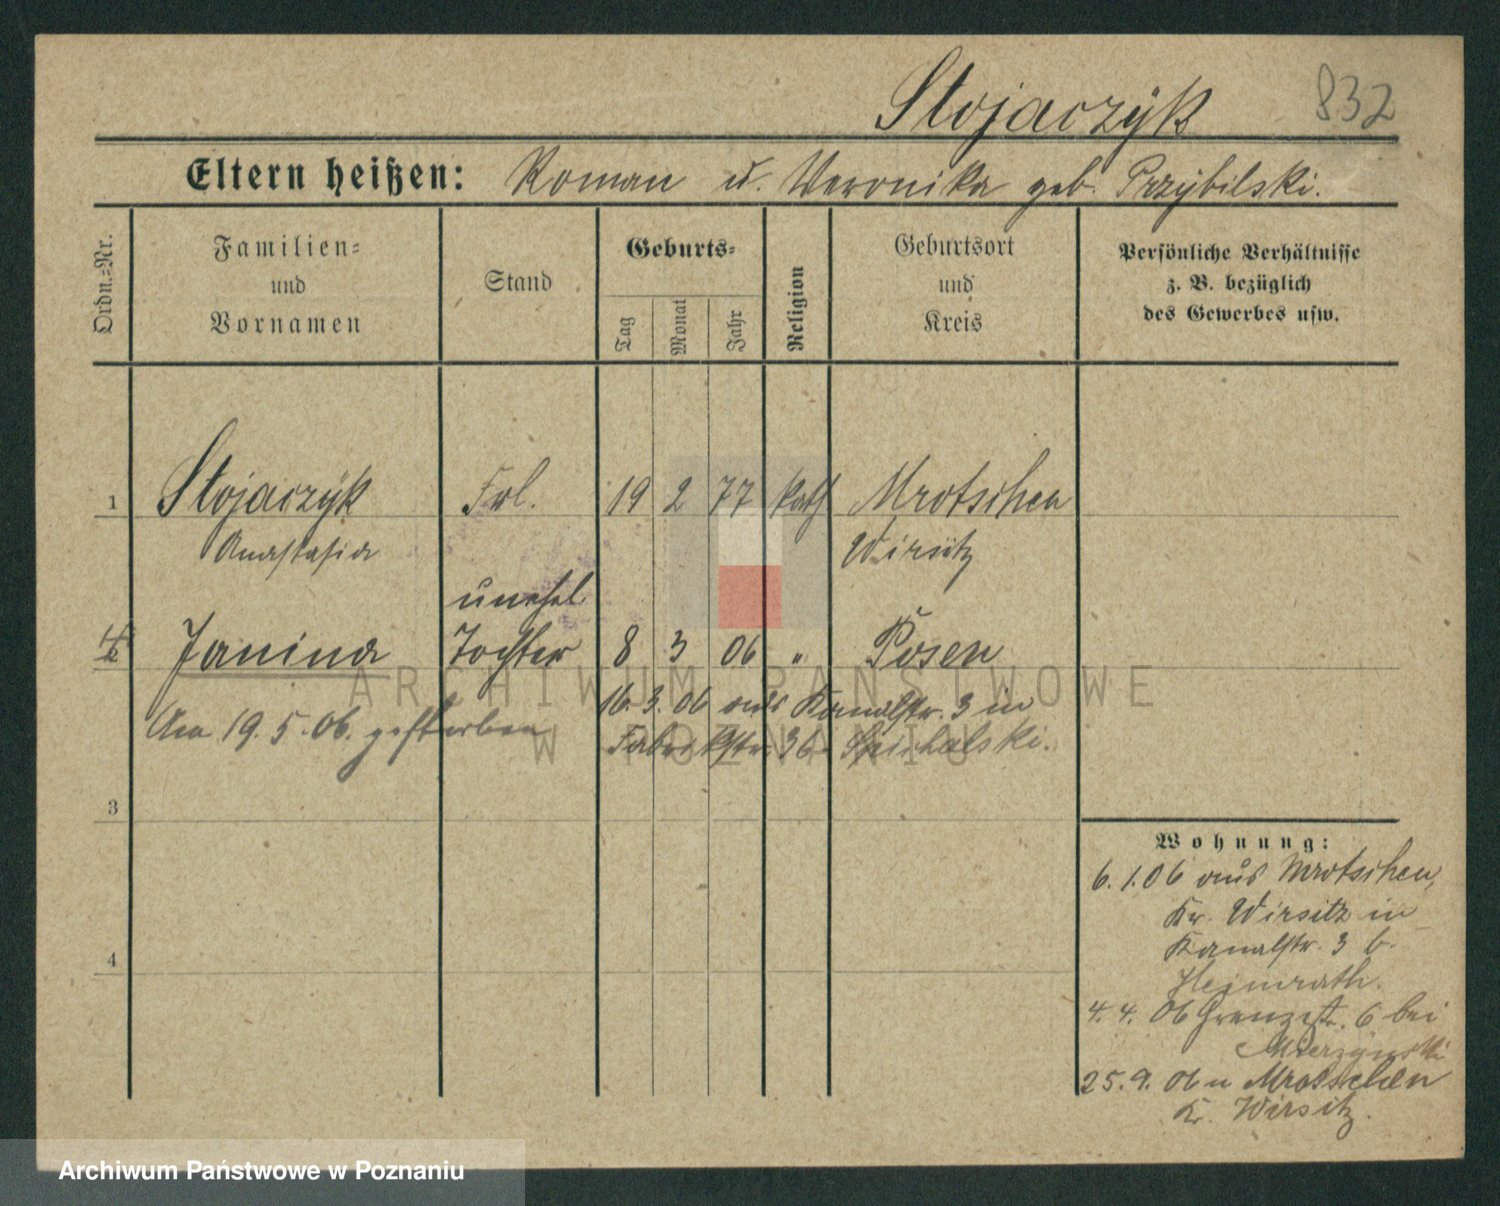 Stojaczÿk 832
Eltern heißen: Roman u. Weronika geb. Przÿbilski.
Ordn.=Nr.
Familien=
und
Vornamen
Stand
Geburts=
Tag
Monat
Jahr
Religion
Geburtsort
und
Kreis
Persönliche Verhältnisse
z. B. bezüglich
des Gewerbes usw.
1 Stojaczÿk Frl. 19 2 77 kath Mrotschen
Anastasia Wirsitz
unehel
2 Janina Tochter 8 3 06 " Posen
Am 19.5.06. gestorben
16.3.06 aus Kanalstr. 3 in
Fabrikstr. 36 Spichalski.
3
4
Wohnung:
6.1.06 aus Mrotschen,
Kr. Wirsitz in
Kanalstr. 3 b.
Heimrath.
4.4.06 Grenzstr. 6 bei
Mierzynski
25.9.06 n Mrotschen
Kr. Wirsitz.
ARCHIWUM PAŃSTWOWE
W POZNANIU
Archiwum Państwowe w Poznaniu